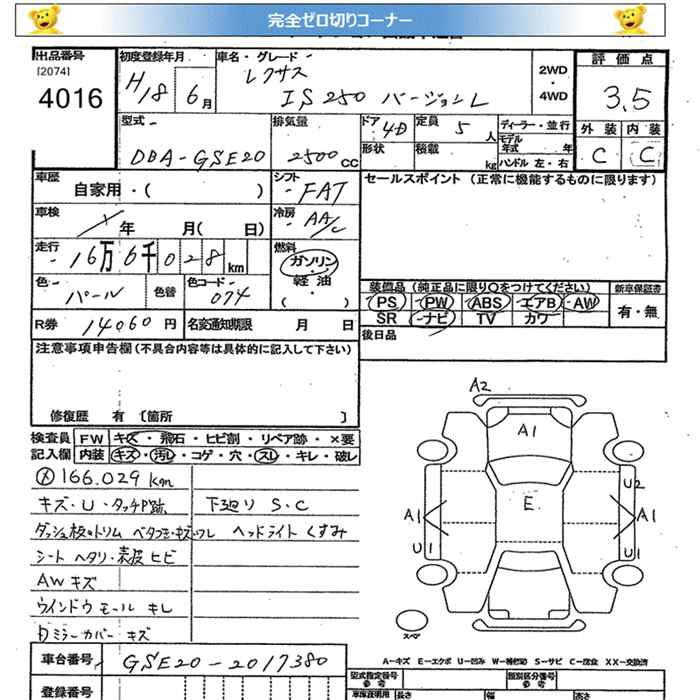 完全ゼロ切りコーナー
出品番号 初度登録年月 車名・グレード 評価点
[2074] レクサス 2WD
4016 H18 6月 IS250 バージョンL ・ 4WD 3.5
型式 排気量 ドア 4D 定員 5人 ディーラー・並行 外装 内装
形状 積載 kg モデル年式 年
DBA-GSE20 2500cc ハンドル 左・右 C C
車歴 シフト セールスポイント (正常に機能するものに限ります)
自家用・( ) FAT
車検 冷房
年 月( 日) AA/C
走行 燃料
16万6千028km ガソリン
軽油
・( )
色 色替 色コード 装備品 (純正品に限り○をつけてください) 新車保証書
パール 074 PS PW ABS エアB AW 有・無
SR ナビ TV カワ
R券 14060円 名変通知期限 月 日 後日品
注意事項申告欄 (不具合内容等は具体的に記入して下さい)
修復歴 有 〔箇所 〕
A2
A1
検査員 FW キズ・飛石・ヒビ割・リペア跡・×要
記入欄 内装 キズ・汚レ・コゲ・穴・スレ・キレ・破レ
166.029km
U2
E
キズ・U・タッチP跡 下廻りS・C
A1 A1
ヘッドライトくすみ
U1 U1
シートヘタリ・表皮ヒビ
AWキズ
ウインドウモールキレ
ミラーカバーキズ
スペア
A-キズ E-エクボ U-凹み W-補修跡 S-サビ C-腐食 XX-交換済
車台番号 GSE20-2017380
型式指定番号 類別区分番号
登録番号 車庫証明用 長さ 幅 高さ